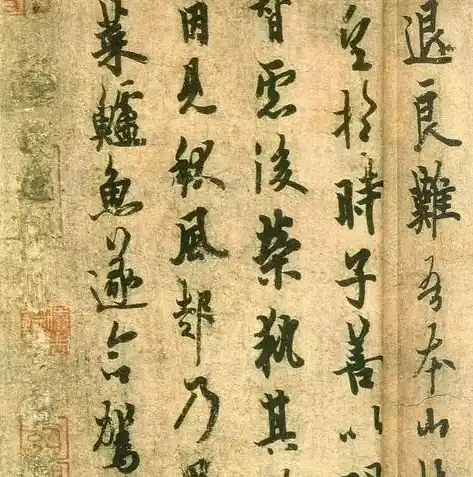 退良難吾本山林
望於時子善以明
智慮後榮執其
因見秋風起乃
菜鱸魚遂命駕